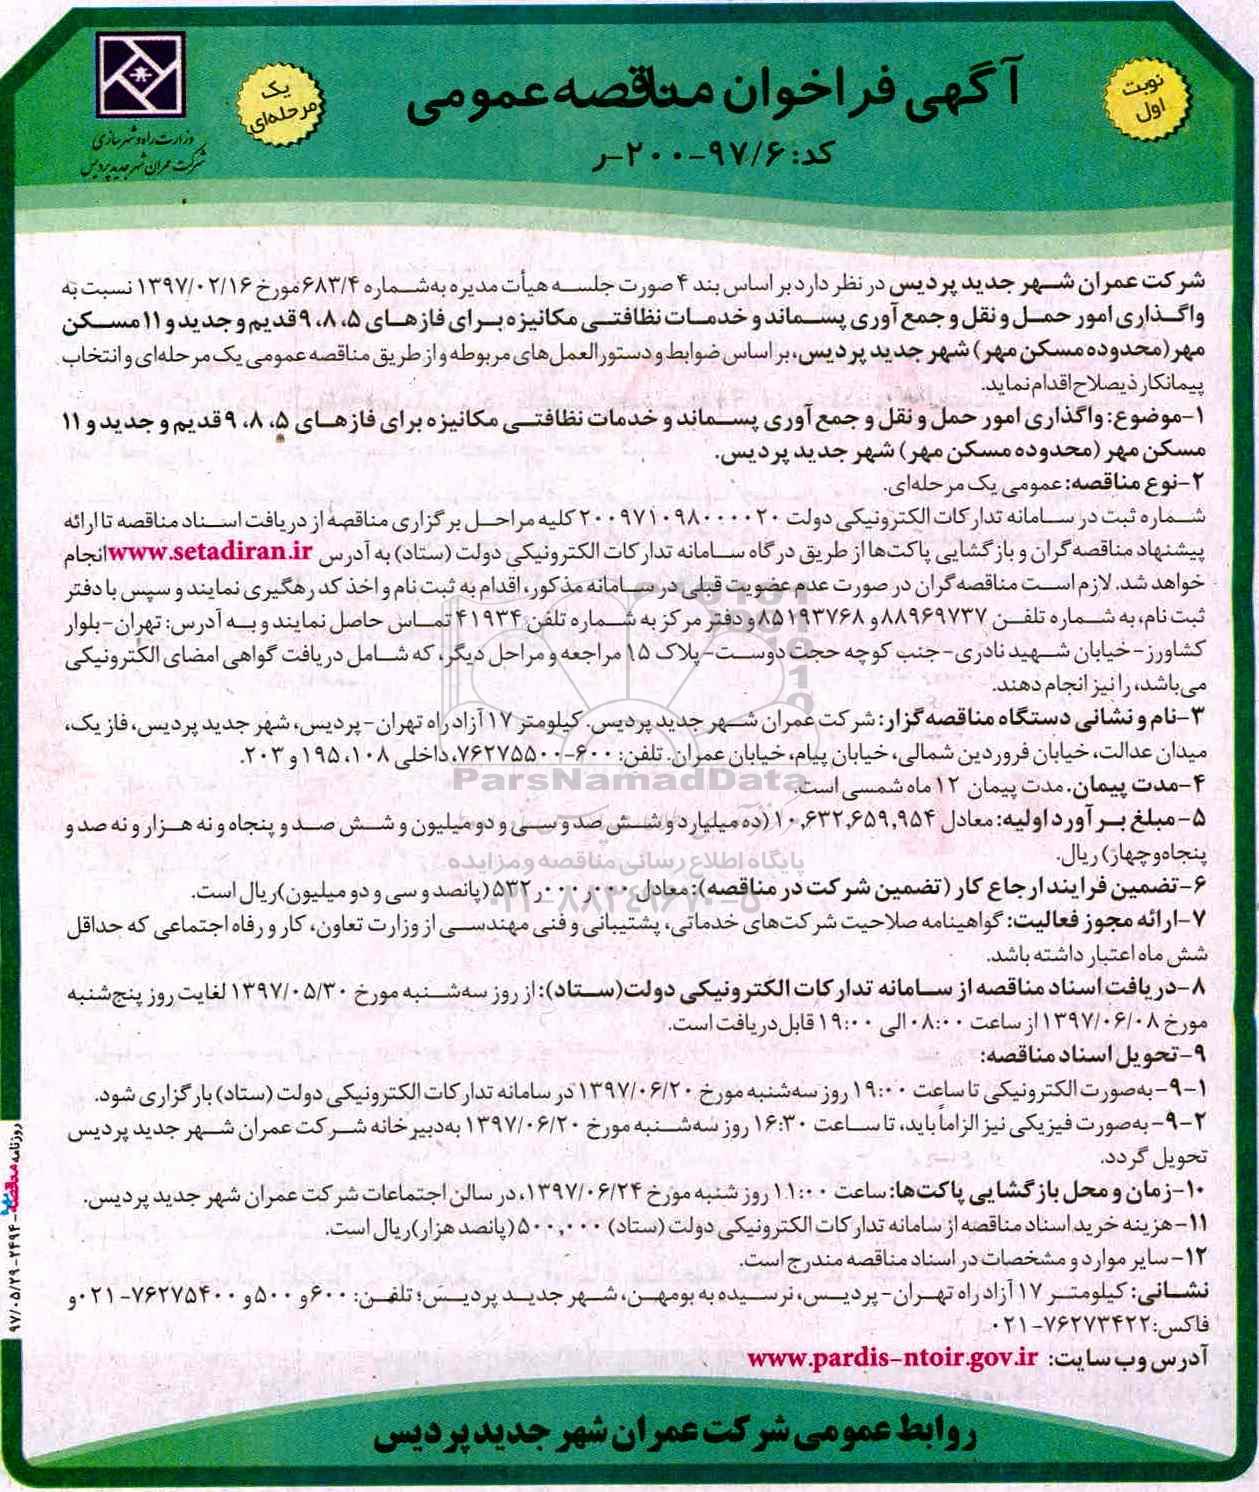 نوبت
اول
آگهی فراخوان مناقصه عمومی
یک
مرحله‌ای
کد: ۹۷/۶-۲۰۰-ر
وزارت راه و شهرسازی
شرکت عمران شهر جدید پردیس
شرکت عمران شهر جدید پردیس در نظر دارد بر اساس بند ۴ صورت جلسه هیأت مدیره به‌شماره ۶۸۳/۴ مورخ ۱۳۹۷/۰۲/۱۶ نسبت به
واگذاری امور حمل و نقل و جمع آوری پسماند و خدمات نظافتی مکانیزه برای فازهای ۵، ۸، ۹ قدیم و جدید و ۱۱ مسکن
مهر (محدوده مسکن مهر) شهر جدید پردیس، بر اساس ضوابط و دستورالعمل‌های مربوطه و از طریق مناقصه عمومی یک مرحله‌ای و انتخاب
پیمانکار ذیصلاح اقدام نماید.
۱-موضوع: واگذاری امور حمل و نقل و جمع آوری پسماند و خدمات نظافتی مکانیزه برای فازهای ۵، ۸، ۹ قدیم و جدید و ۱۱
مسکن مهر (محدوده مسکن مهر) شهر جدید پردیس.
۲-نوع مناقصه: عمومی یک مرحله‌ای.
شماره ثبت در سامانه تدارکات الکترونیکی دولت ۲۰۰۹۷۱۰۹۸۰۰۰۰۲۰ کلیه مراحل برگزاری مناقصه از دریافت اسناد مناقصه تا ارائه
پیشنهاد مناقصه‌گران و بازگشایی پاکت‌ها از طریق درگاه سامانه تدارکات الکترونیکی دولت (ستاد) به آدرس www.setadiran.ir انجام
خواهد شد. لازم است مناقصه‌گران در صورت عدم عضویت قبلی در سامانه مذکور، اقدام به ثبت نام و اخذ کد رهگیری نمایند و سپس با دفتر
ثبت نام، به شماره تلفن ۸۸۹۶۹۷۳۷ و ۸۵۱۹۳۷۶۸ و دفتر مرکز به شماره تلفن ۴۱۹۳۴ تماس حاصل نمایند و به آدرس: تهران-بلوار
کشاورز-خیابان شهید نادری-جنب کوچه حجت دوست-پلاک ۱۵ مراجعه و مراحل دیگر، که شامل دریافت گواهی امضای الکترونیکی
می‌باشد، را نیز انجام دهند.
۳-نام و نشانی دستگاه مناقصه‌گزار: شرکت عمران شهر جدید پردیس. کیلومتر ۱۷ آزادراه تهران-پردیس، شهر جدید پردیس، فاز یک،
میدان عدالت، خیابان فروردین شمالی، خیابان پیام، خیابان عمران. تلفن: ۶۰۰-۷۶۲۷۵۵۰۰، داخلی ۱۰۸، ۱۹۵ و ۲۰۳.
ParsNamadData
۴-مدت پیمان. مدت پیمان ۱۲ ماه شمسی است.
۵-مبلغ برآورد اولیه: معادل ۱۰,۶۳۲,۶۵۹,۹۵۴ (ده میلیارد و شش صد و سی و دو میلیون و شش صد و پنجاه و نه هزار و نه صد و
پنجاه و چهار) ریال.
پایگاه اطلاع رسانی مناقصه و مزایده
۶-تضمین فرایند ارجاع کار (تضمین شرکت در مناقصه): معادل ۵۳۲ر۰۰۰ر۰۰۰ (پانصد و سی و دو میلیون) ریال است.
۰۲۱-۸۸۳۴۹۶۷۰-۵
۷-ارائه مجوز فعالیت: گواهینامه صلاحیت شرکت‌های خدماتی، پشتیبانی و فنی مهندسی از وزارت تعاون، کار و رفاه اجتماعی که حداقل
شش ماه اعتبار داشته باشد.
۸-دریافت اسناد مناقصه از سامانه تدارکات الکترونیکی دولت (ستاد): از روز سه‌شنبه مورخ ۱۳۹۷/۰۵/۳۰ لغایت روز پنج‌شنبه
مورخ ۱۳۹۷/۰۶/۰۸ از ساعت ۰۸:۰۰ الی ۱۹:۰۰ قابل دریافت است.
۹-تحویل اسناد مناقصه:
۹-۱-به‌صورت الکترونیکی تا ساعت ۱۹:۰۰ روز سه‌شنبه مورخ ۱۳۹۷/۰۶/۲۰ در سامانه تدارکات الکترونیکی دولت (ستاد) بارگزاری شود.
۹-۲-به‌صورت فیزیکی نیز الزاماً باید، تا ساعت ۱۶:۳۰ روز سه‌شنبه مورخ ۱۳۹۷/۰۶/۲۰ به‌دبیرخانه شرکت عمران شهر جدید پردیس
تحویل گردد.
۱۰-زمان و محل بازگشایی پاکت‌ها: ساعت ۱۱:۰۰ روز شنبه مورخ ۱۳۹۷/۰۶/۲۴، در سالن اجتماعات شرکت عمران شهر جدید پردیس.
۱۱-هزینه خرید اسناد مناقصه از سامانه تدارکات الکترونیکی دولت (ستاد) ۵۰۰,۰۰۰ (پانصد هزار) ریال است.
۱۲-سایر موارد و مشخصات در اسناد مناقصه مندرج است.
نشانی: کیلومتر ۱۷ آزاد راه تهران-پردیس، نرسیده به بومهن، شهر جدید پردیس؛ تلفن: ۶۰۰ و ۵۰۰ و ۷۶۲۷۵۴۰۰-۰۲۱ و
فاکس: ۷۶۲۷۳۴۲۲-۰۲۱
آدرس وب سایت: www.pardis-ntoir.gov.ir
روابط عمومی شرکت عمران شهر جدید پردیس
روزنامه مناقصه - ۲۴۹۴ - ۹۷/۰۵/۲۹